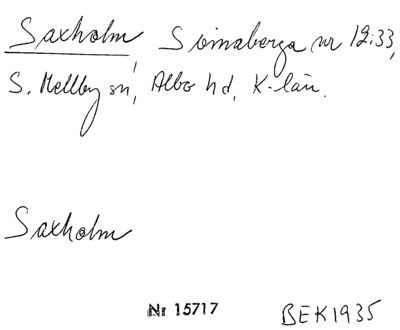 Saxholm, Simaberga nr 12:33,
S. Mellby sn, Albo hd, K-län.
Saxholm
Nr 15717
BEK1935